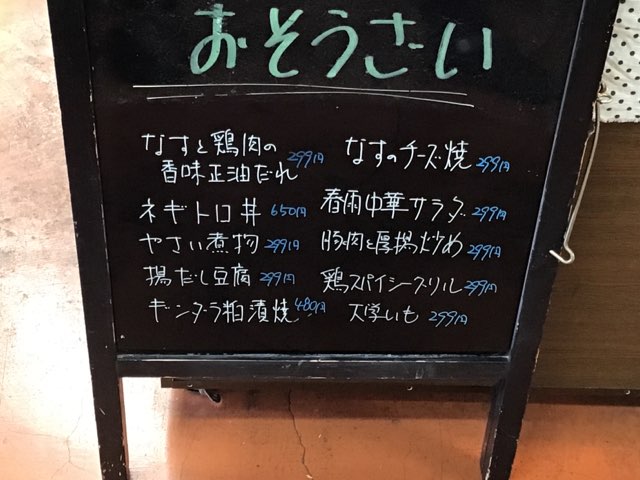 おそうざい
なすと鶏肉の
香味正油だれ 299円
ネギトロ丼 650円
やさい煮物 299円
揚だし豆腐 299円
ギンダラ粕漬焼 480円
なすのチーズ焼 299円
春雨中華サラダ 299円
豚肉と厚揚炒め 299円
鶏スパイシーグリル 299円
大学いも 299円